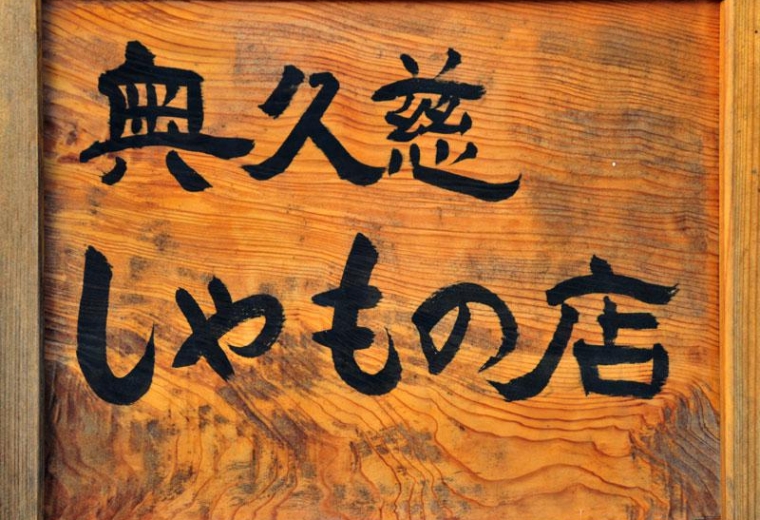 奥久慈
しゃもの店